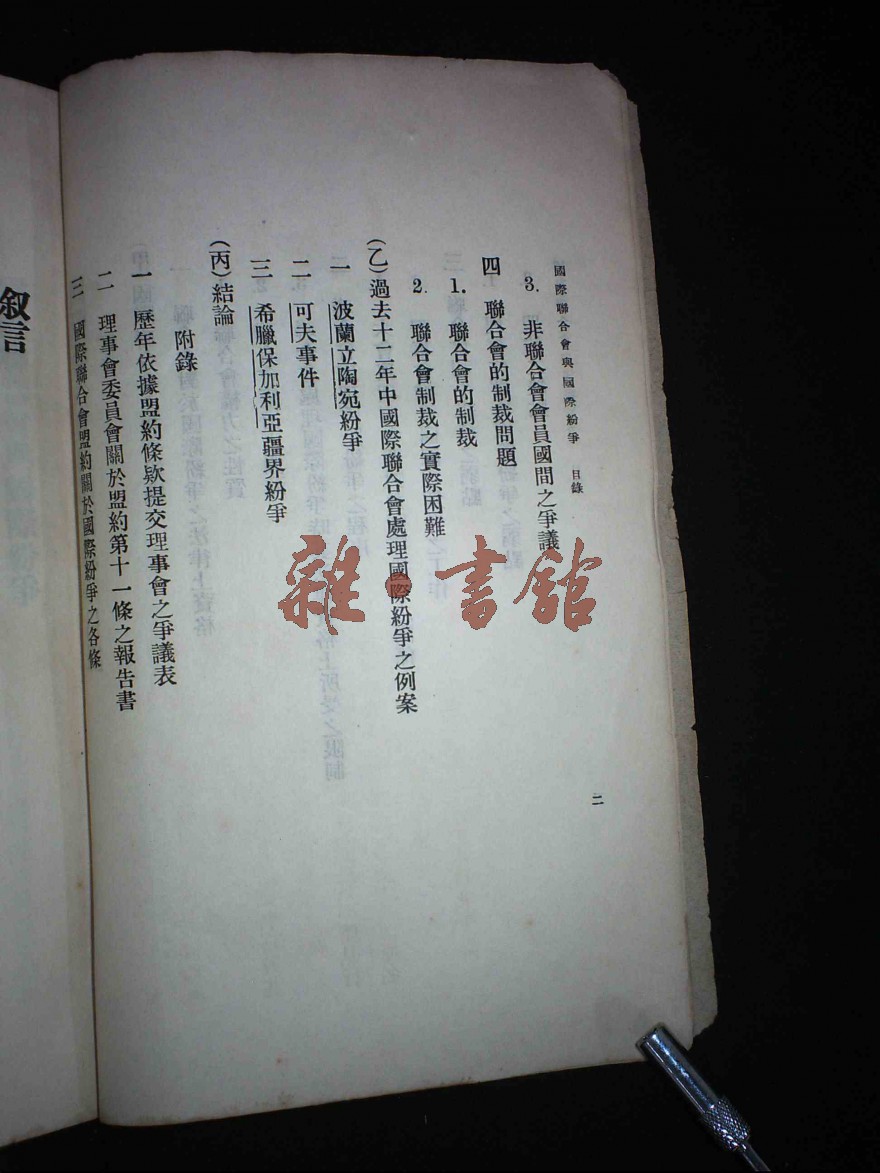 國際聯合會與國際紛爭 目錄
3. 非聯合會會員國間之爭議
四 聯合會的制裁問題
1. 聯合會的制裁
2. 聯合會制裁之實際困難
(乙)過去十二年中國際聯合會處理國際紛爭之例案
一 波蘭立陶宛紛爭
二 可夫事件
三 希臘保加利亞疆界紛爭
(丙)結論
附錄
一 歷年依據盟約條款提交理事會之爭議表
二 理事會委員會關於盟約第十一條之報告書
三 國際聯合會盟約關於國際紛爭之各條
二
叙言
雜·書館